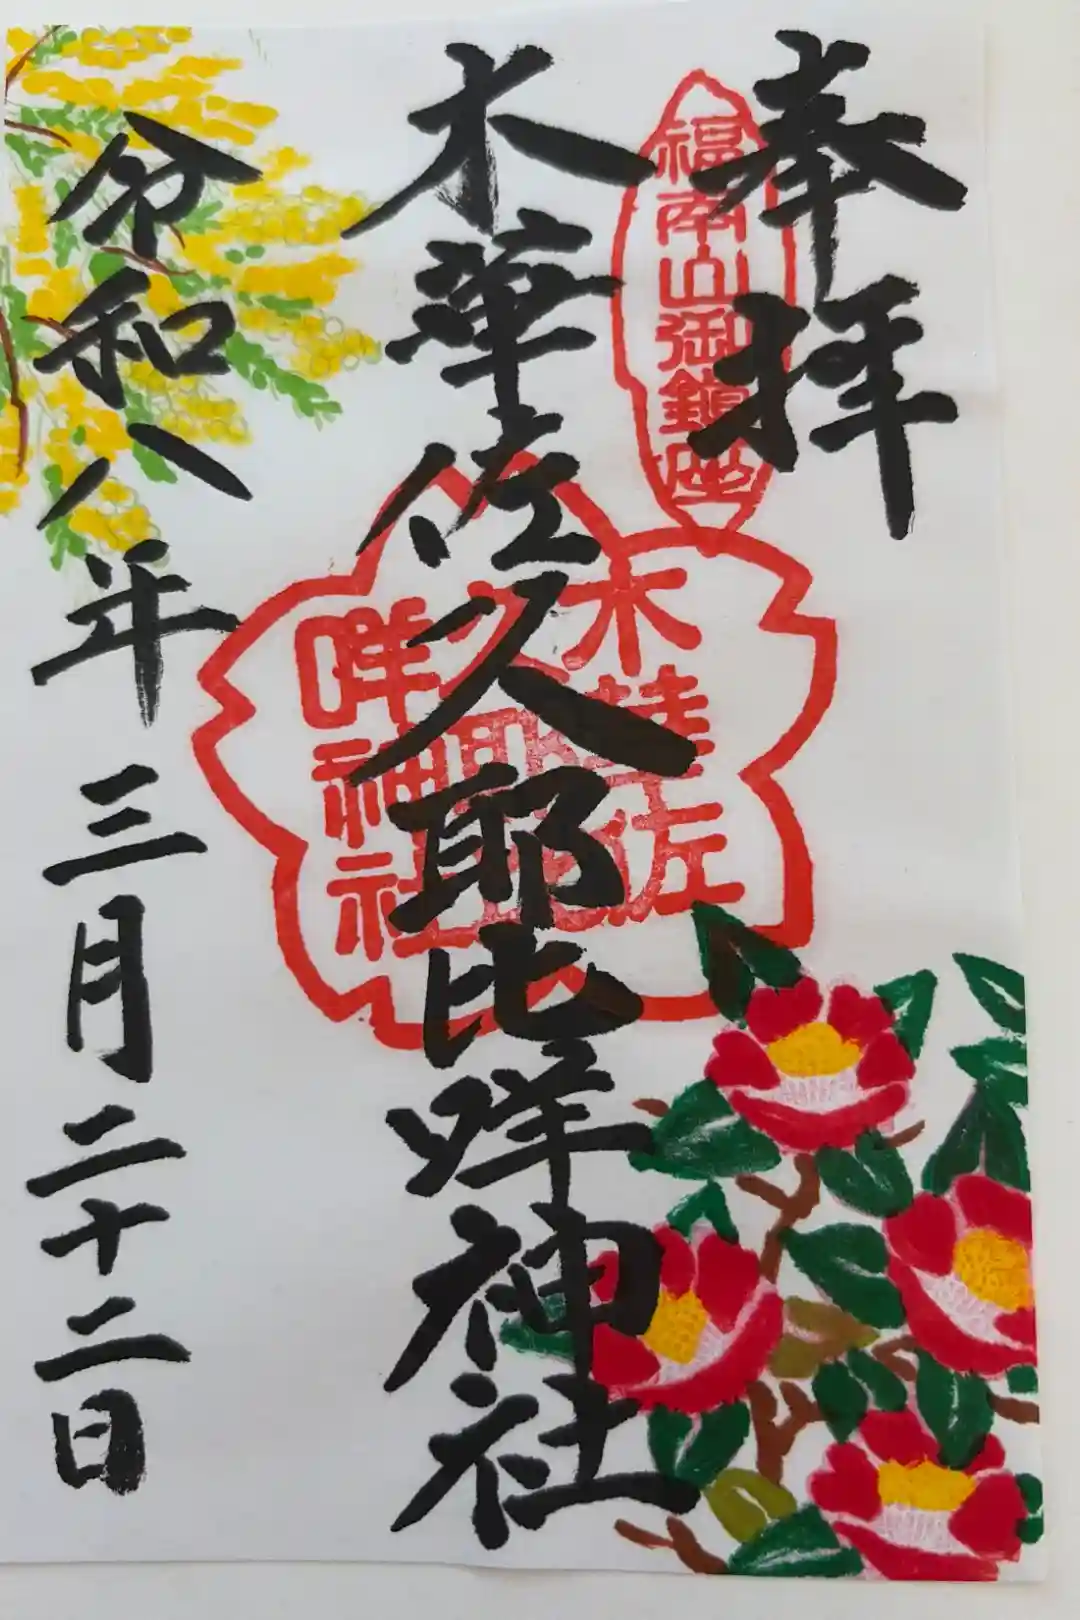 奉拝
福南山御鎮座
木華佐久耶比咩神社
木華佐
久耶比
咩神社
令和八年三月二十二日